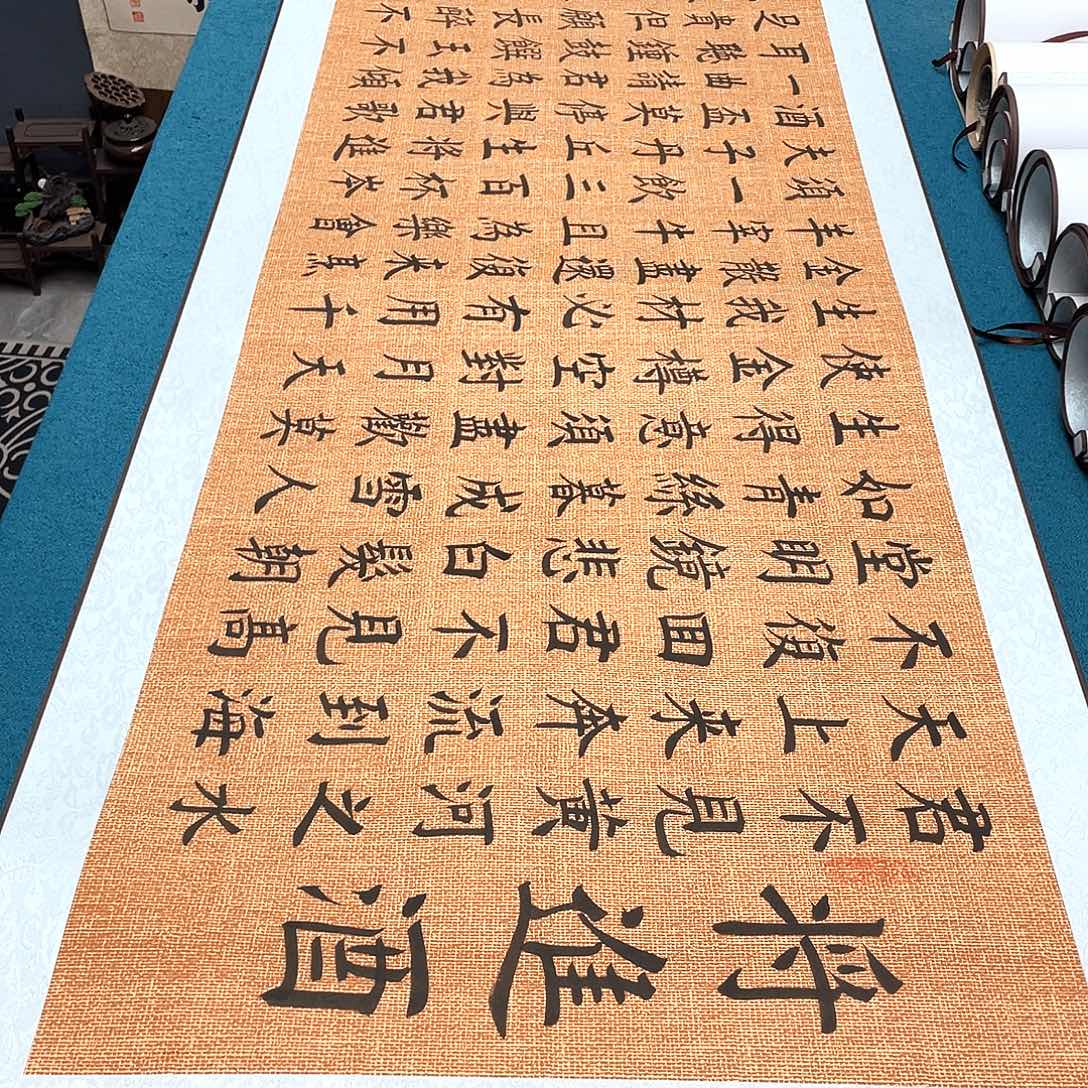 將進酒
君不見黃河之水
天上来奔流到海
不復回君不見高
堂明鏡悲白髮朝
如青絲暮成雪人
生得意須盡歡莫
使金樽空對月天
生我材必有用千
金散盡還復来烹
羊宰牛且為樂會
須一飲三百杯岑
夫子丹丘生將進
酒盃莫停與君歌
一曲請君為我傾
耳聽鐘鼓饌玉不
足貴但願長醉不